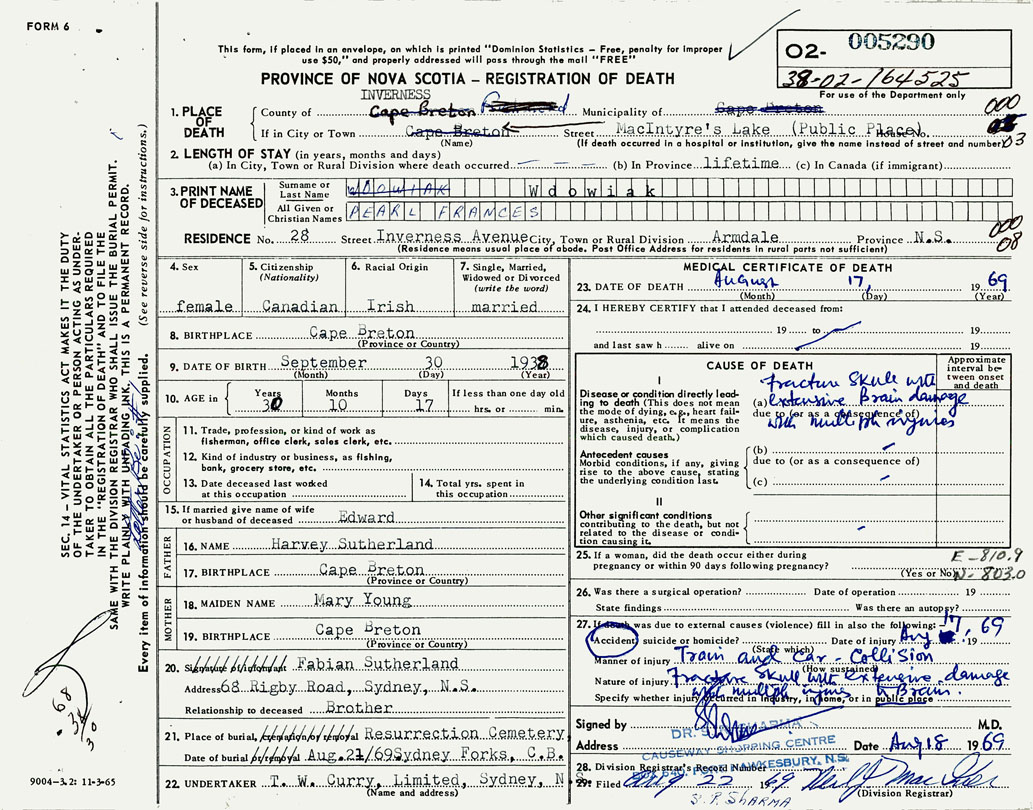 FORM 6
This form, if placed in an envelope, on which is printed "Dominion Statistics – Free, penalty for improper
use $50," and properly addressed will pass through the mail "FREE"
O2- 005290
38-02-164525
For use of the Department only
PROVINCE OF NOVA SCOTIA – REGISTRATION OF DEATH
INVERNESS
1. PLACE OF DEATH
County of Cape Breton Municipality of Cape Breton
000
If in City or Town Cape Breton Street MacIntyre's Lake (Public Place) House No.
03
(Name) (If death occurred in a hospital or institution, give the name instead of street and number)
2. LENGTH OF STAY (in years, months and days)
(a) In City, Town or Rural Division where death occurred — — — (b) In Province lifetime (c) In Canada (if immigrant)
3. PRINT NAME OF DECEASED
Surname or Last Name WDOWIAK Wdowiak
All Given or Christian Names PEARL FRANCES
000
08
RESIDENCE No. 28 Street Inverness Avenue City, Town or Rural Division Armdale Province N.S.
(Residence means usual place of abode. Post Office Address for residents in rural parts not sufficient)
4. Sex
female
5. Citizenship (Nationality)
Canadian
6. Racial Origin
Irish
7. Single, Married, Widowed or Divorced (write the word)
married
8. BIRTHPLACE Cape Breton
(Province or Country)
9. DATE OF BIRTH September 30 1938
(Month) (Day) (Year)
10. AGE in
Years 30
Months 10
Days 17
If less than one day old
hrs. or min.
OCCUPATION
11. Trade, profession, or kind of work as
fisherman, office clerk, sales clerk, etc.
12. Kind of industry or business, as fishing,
bank, grocery store, etc.
13. Date deceased last worked
at this occupation
14. Total yrs. spent in
this occupation
15. If married give name of wife
or husband of deceased Edward
FATHER
16. NAME Harvey Sutherland
17. BIRTHPLACE Cape Breton
(Province or Country)
MOTHER
18. MAIDEN NAME Mary Young
19. BIRTHPLACE Cape Breton
(Province or Country)
20. Signature of informant Fabian Sutherland
Address 68 Rigby Road, Sydney, N.S.
Relationship to deceased Brother
21. Place of burial, cremation or removal Resurrection Cemetery
Date of burial or removal Aug.21/69 Sydney Forks, C.B.
22. UNDERTAKER T. W. Curry, Limited, Sydney, N.S.
(Name and address)
MEDICAL CERTIFICATE OF DEATH
23. DATE OF DEATH August 17, 1969
(Month) (Day) (Year)
24. I HEREBY CERTIFY that I attended deceased from:
19 to 19
and last saw h alive on 19
CAUSE OF DEATH
Approximate interval between onset and death
I
Disease or condition directly leading to death (This does not mean the mode of dying, e.g., heart failure, asthenia, etc. It means the disease, injury, or complication which caused death.)
(a) Fracture Skull with
extensive Brain damage
due to (or as a consequence of)
with multiple injuries
Antecedent causes
Morbid conditions, if any, giving rise to the above cause, stating the underlying condition last.
(b)
due to (or as a consequence of)
(c)
II
Other significant conditions
contributing to the death, but not related to the disease or condition causing it.
25. If a woman, did the death occur either during
pregnancy or within 90 days following pregnancy?
(Yes or No)
E-810.9
N-803.0
26. Was there a surgical operation? Date of operation 19
State findings Was there an autopsy?
27. If death was due to external causes (violence) fill in also the following:
Accident, suicide or homicide? Date of injury Aug 17, 1969
(State which)
Manner of injury Train and Car - Collision
(How sustained)
Nature of injury Fracture Skull with extensive damage
with multiple injuries to Brain.
Specify whether injury occurred in industry, in home, or in public place
Signed by M.D.
DR. S. P. SHARMA
CAUSEWAY SHOPPING CENTRE
PORT HAWKESBURY, N.S.
Address Date Aug 18 1969
28. Division Registrar's Record Number
29. Filed Aug 22 1969
(Division Registrar)
S. P. SHARMA
SEC. 14 – VITAL STATISTICS ACT MAKES IT THE DUTY
OF THE UNDERTAKER OR PERSON ACTING AS UNDER-
TAKER TO OBTAIN ALL THE PARTICULARS REQUIRED
IN THE "REGISTRATION OF DEATH" AND TO FILE THE
SAME WITH THE DIVISION REGISTRAR WHO SHALL ISSUE THE BURIAL PERMIT.
WRITE PLAINLY WITH UNFADING INK, THIS IS A PERMANENT RECORD.
Every item of information should be carefully supplied. (See reverse side for instructions.)
68
38
30
9004-3.2: 11-3-65